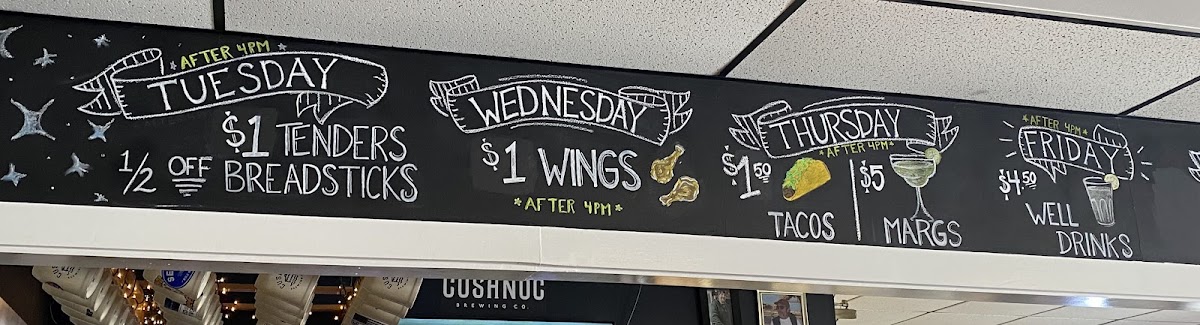 *AFTER 4PM*
TUESDAY
$1 TENDERS
1/2 OFF BREADSTICKS
WEDNESDAY
$1 WINGS
*AFTER 4PM*
THURSDAY
*AFTER 4PM*
$1.50
TACOS
$5
MARGS
*AFTER 4PM*
FRIDAY
$4.50
WELL
DRINKS
CUSHNOC
BREWING CO.